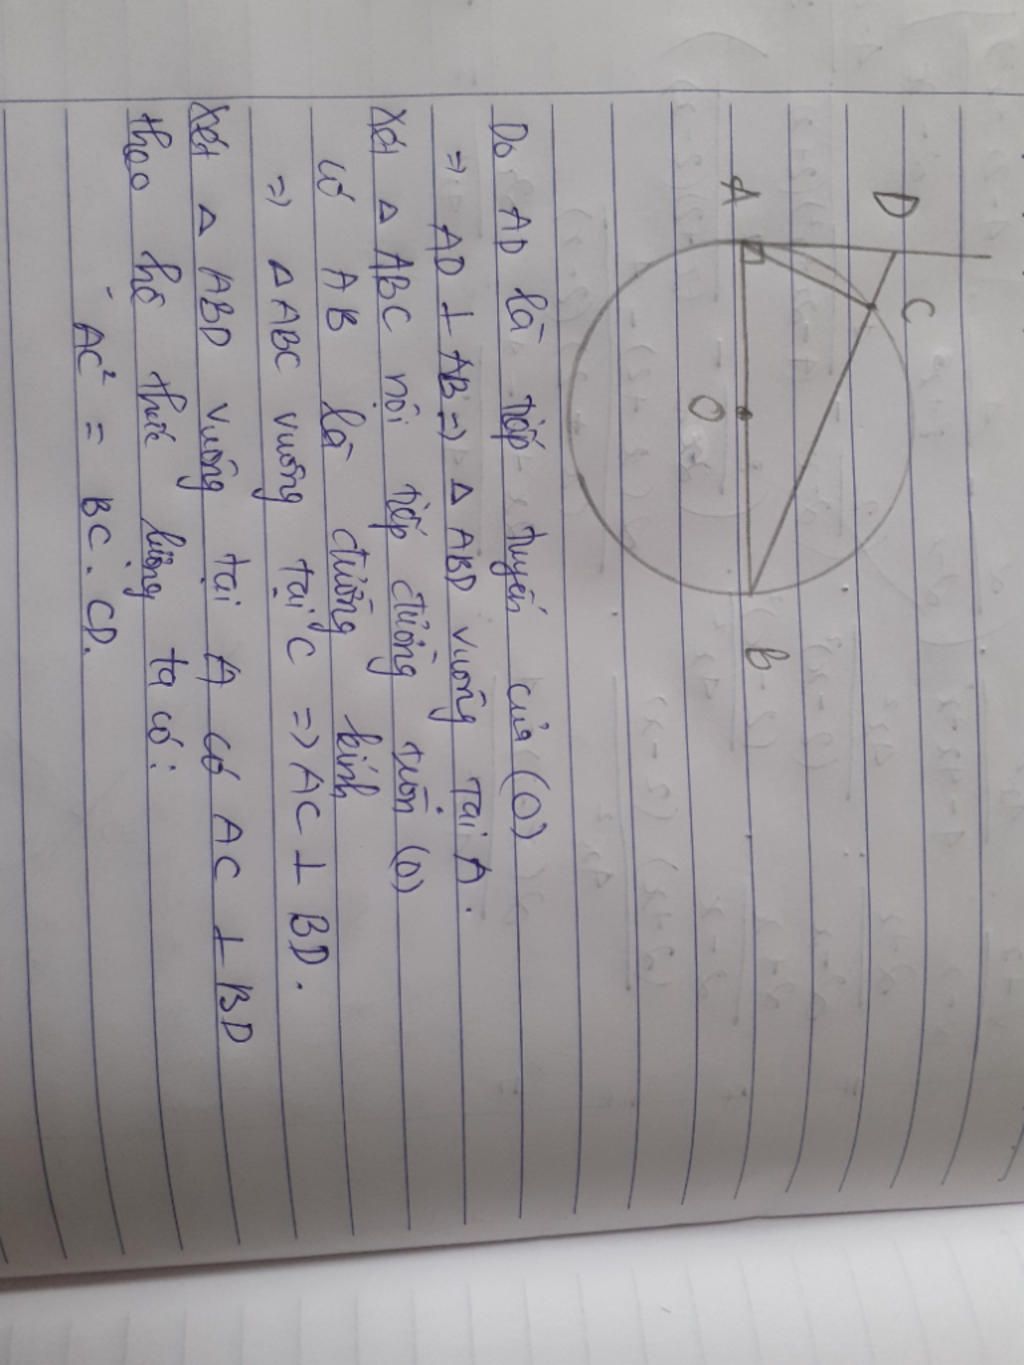 D
C
A
O
B
Do AD là tiếp tuyến của (O)
=> AD ⊥ AB => Δ ABD vuông tại A.
Xét Δ ABC nội tiếp đường tròn (O)
có AB là đường kính
=> Δ ABC vuông tại C => AC ⊥ BD.
Xét Δ ABD vuông tại A có AC ⊥ BD
theo hệ thức lượng ta có:
AC² = BC. CD.